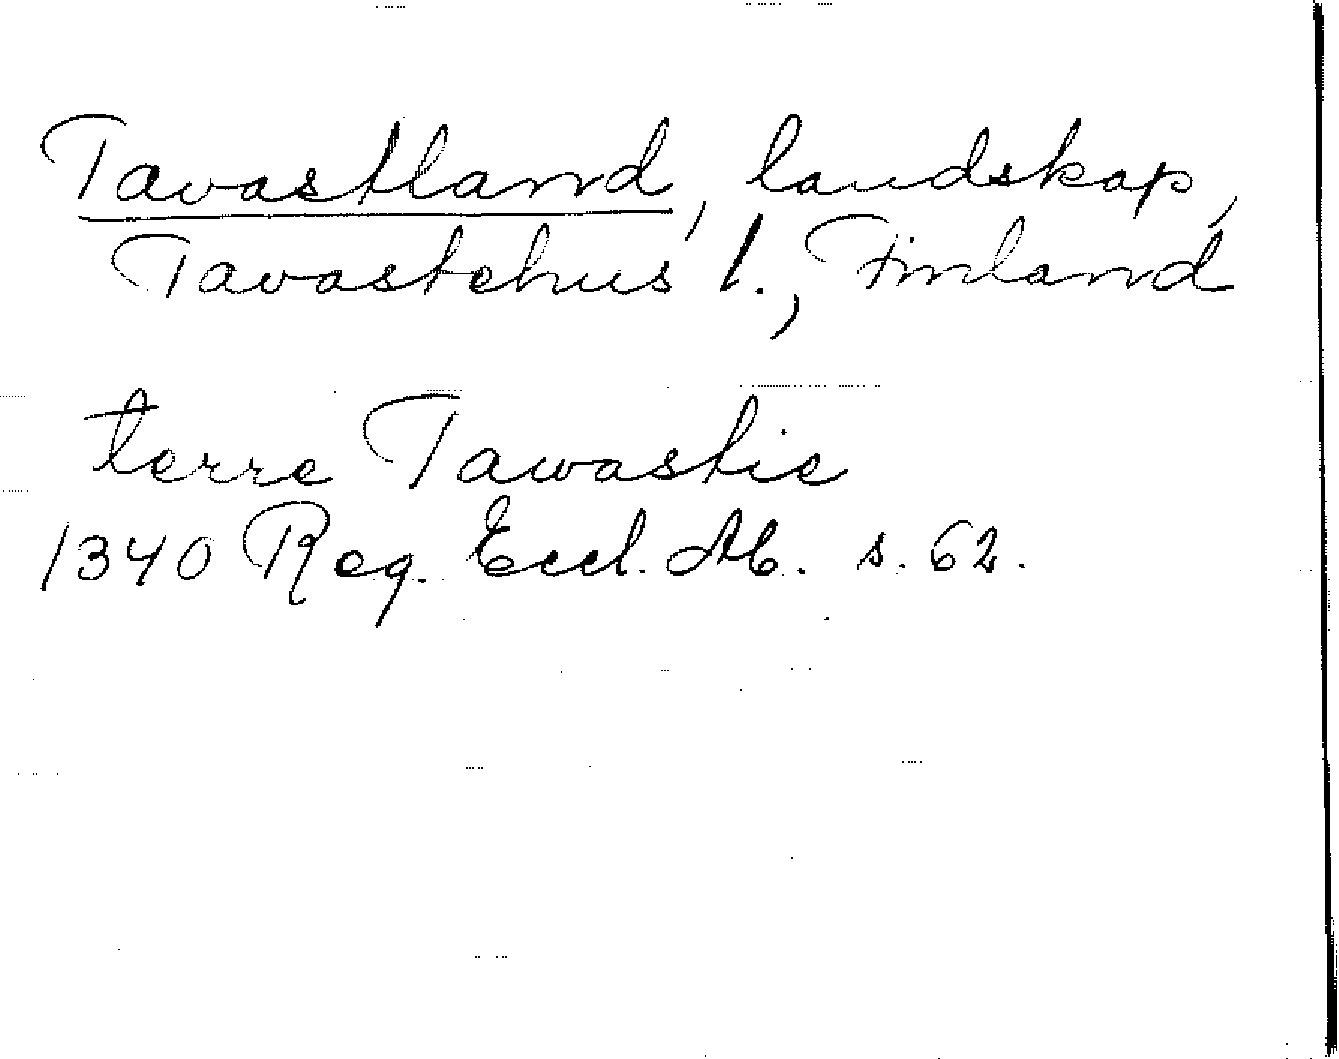 Tavastland, landskap,
Tavastehus l., Finland
terre Tawastie
1340 Reg. Eccl. Ab. s. 62.